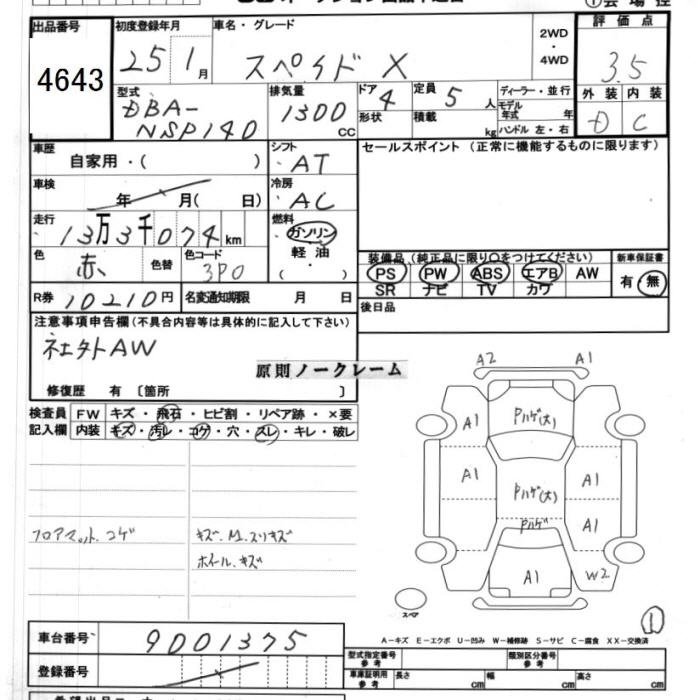 出品番号
4643
初度登録年月
25 1月
車名・グレード
スペイド X
2WD
・
4WD
評価点
3.5
外装 内装
D C
型式
DBA-
NSP140
排気量
1300
CC
ドア 4
形状
定員 5 人
積載 kg
ディーラー・並行
モデル年式 年
ハンドル 左・右
車歴
自家用・( )
シフト
・AT
セールスポイント (正常に機能するものに限ります)
車検
年 月( 日)
冷房
・AC
走行
13万3千074km
燃料
・ガソリン
軽油
・( )
色
赤
色替
色コード
3P0
装備品 (純正品に限り〇をつけてください)
PS PW ABS エアB AW
SR ナビ TV カワ
新車保証書
有・無
R券 10210円
名変通知期限 月 日
後日品
注意事項申告欄(不具合内容等は具体的に記入して下さい)
社外AW
原則ノークレーム
修復歴 有 〔箇所 〕
検査員
記入欄
FW キズ・飛石・ヒビ割・リペア跡・×要
内装 キズ・汚レ・コゲ・穴・スレ・キレ・破レ
フロアマット、コゲ
キズ、M.スリキズ
ホイール、キズ
A2 A1
A1 Pハゲ(大)
A1 A1
Pハゲ(大)
Pハゲ A1
A1 W2
スペア
1
A-キズ E-エクボ U-凹み W-補修跡 S-サビ C-腐食 XX-交換済
車台番号
9001375
登録番号
型式指定番号
参考
類別区分番号
参考
車庫証明用
参考
長さ cm 幅 cm 高さ cm